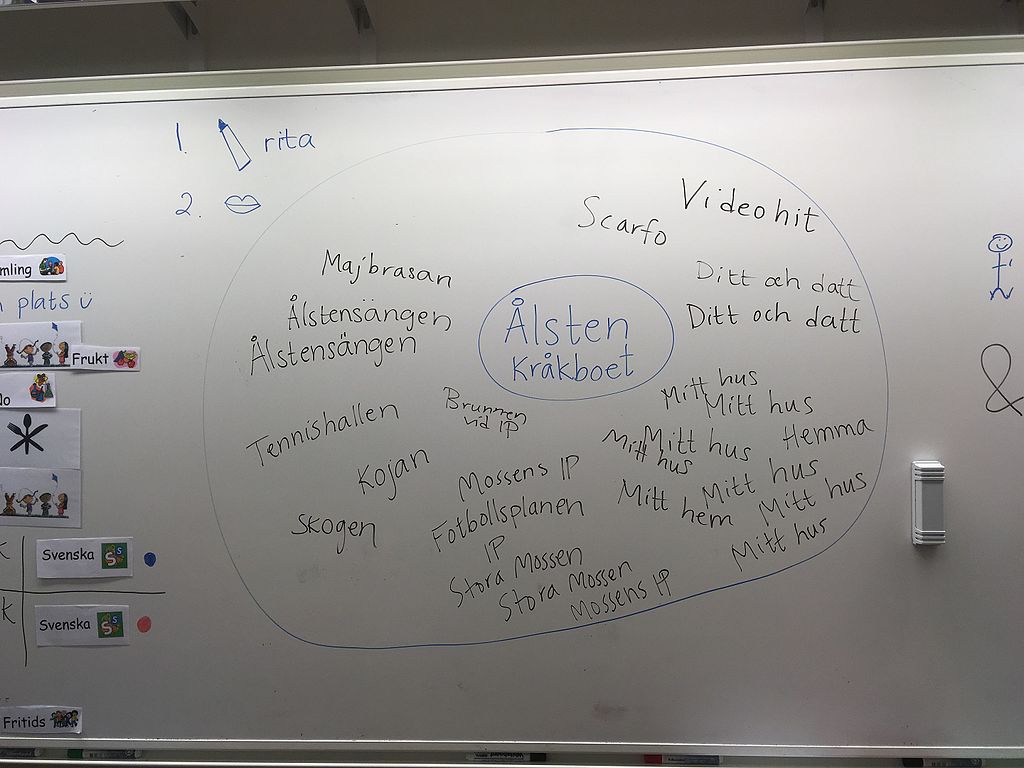 1. rita
2.
mling
plats ü
Frukt
Svenska
Svenska
Fritids
Scarfo
Videohit
Majbrasan
Ålstensängen
Ålstensängen
Ditt och datt
Ditt och datt
Ålsten
Kråkboet
Tennishallen
Kojan
Skogen
Brunnen
vid IP
Mossens IP
Fotbollsplanen
IP
Stora Mossen
Stora Mossen
Mossens IP
Mitt hus
Mitt hus
Mitt hus
Mitt hus
Hemma
Mitt hem
Mitt hus
Mitt hus
Mitt hus
&